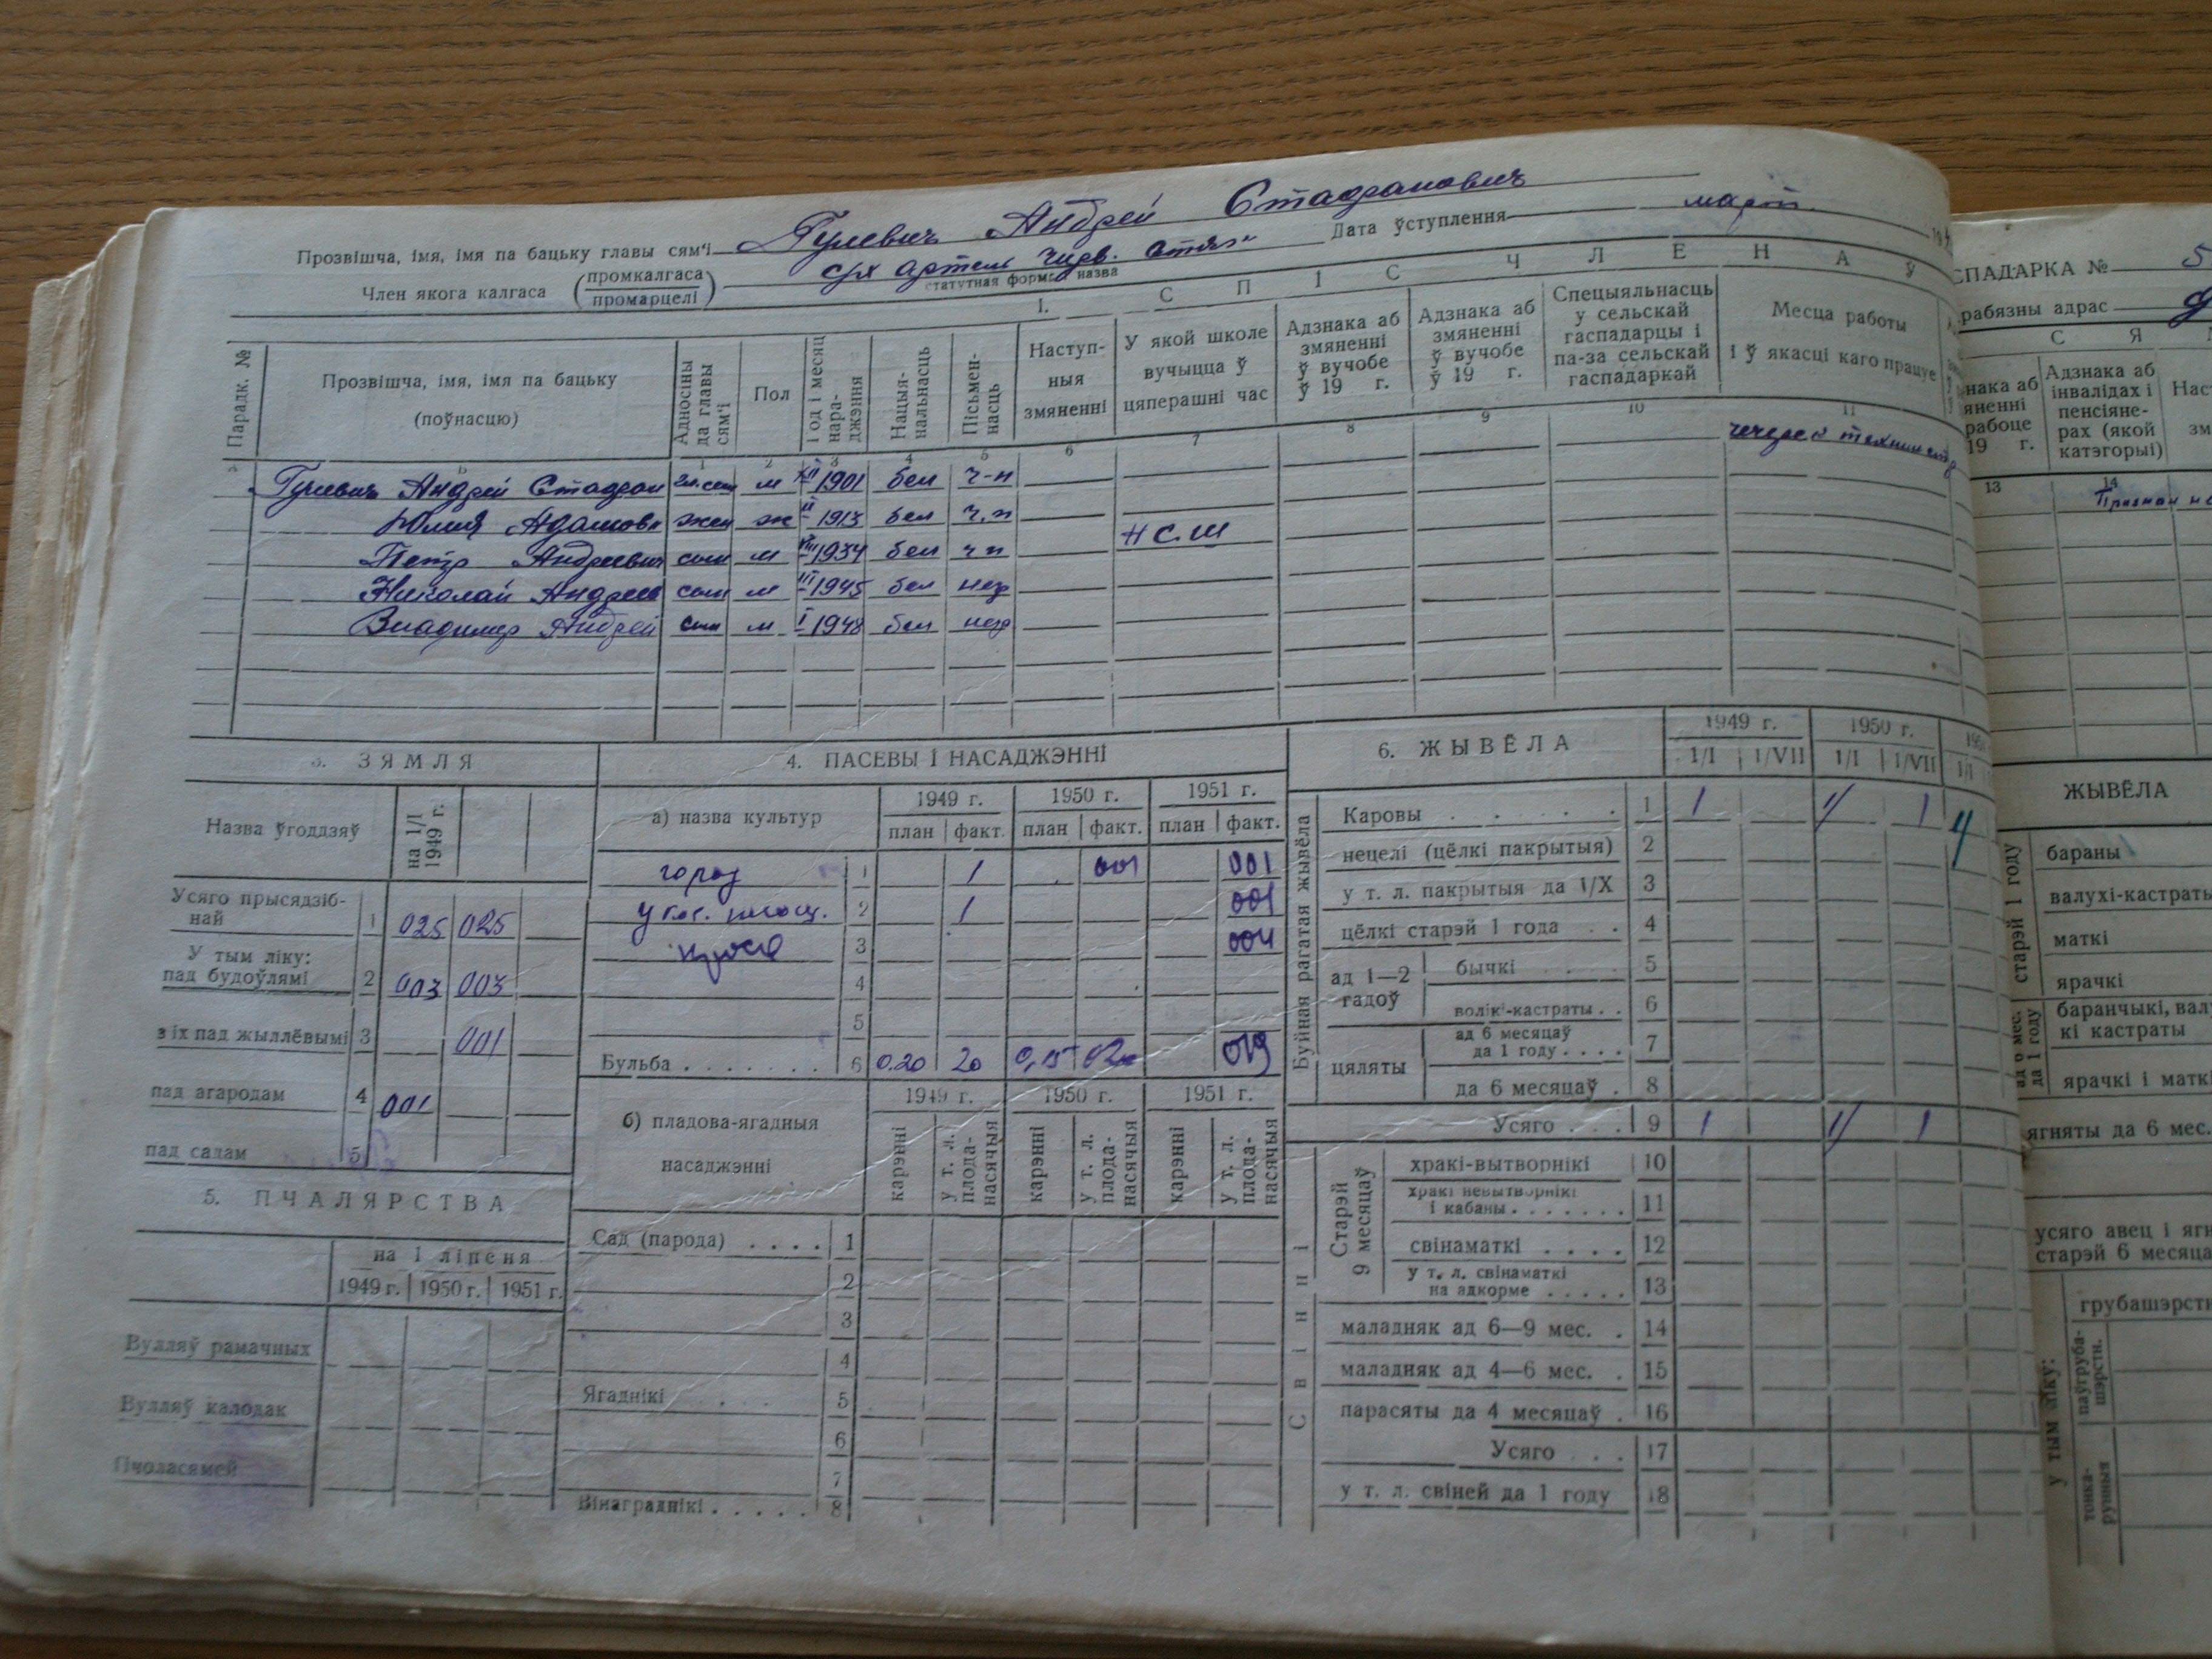 Прозвішча, імя, імя па бацьку главы сям'і Гулевич Андрей Стафанович
Член якога калгаса (промкалгаса / промарцелі) с/х артель Чирв. Дата ўступлення март
статутная форма назва
I. СПІС ЧЛЕНАЎ
Парадк. №
Прозвішча, імя, імя па бацьку (поўнасцю)
Адносіны да главы сям'і
Пол
Год і месяц нараджэння
Нацыянальнасць
Пісьменнасць
Наступныя змяненні
У якой школе вучыцца ў цяперашні час
Адзнака аб змяненні ў вучобе ў 19 г.
Адзнака аб змяненні ў вучобе ў 19 г.
Спецыяльнасць у сельскай гаспадарцы і па-за сельскай гаспадаркай
Месца работы і ў якасці каго працуе
1 2 3 4 5 6 7 8 9 10 11
Гулевич Андрей Стафан м 1901 бел ч-н
Юлия Адамовн жен ж II 1913 бел ч.н
Петр Андреевич сын м VIII 1934 бел ч н Н С. Ш
Николай Андрее сын м III 1945 бел нег
Владимир Андрей сын м I 1948 бел нег
3. ЗЯМЛЯ
Назва ўгоддзяў на 1/I 1949 г.
Усяго прысядзібнай 1 025 025
У тым ліку: пад будоўлямі 2 003 003
з іх пад жыллёвымі 3 001
пад агародам 4 001
пад садам 5
5. ПЧАЛЯРСТВА
на 1 ліпеня
1949 г. 1950 г. 1951 г.
Вулляў рамачных
Вулляў калодак
Пчоласямей
4. ПАСЕВЫ І НАСАДЖЭННІ
а) назва культур 1949 г. 1950 г. 1951 г.
план факт. план факт. план факт.
город 1 1 001 001
2 1 001
просо 3 004
4
5
Бульба 6 0.20 20 0,15 019
б) пладова-ягадныя насаджэнні 1949 г. 1950 г. 1951 г.
карэнні у т. л. плоданасячыя карэнні у т. л. плоданасячыя карэнні у т. л. плоданасячыя
Сад (парода) . . . . 1
2
3
4
Ягаднікі 5
6
7
Вінаграднікі . . . . . 8
6. ЖЫВЁЛА 1949 г. 1950 г.
1/I 1/VII 1/I 1/VII 1/I
Буйная рагатая жывёла
Каровы 1 1 1 1
нецелі (цёлкі пакрытыя) 2
у т. л. пакрытыя да 1/X 3
цёлкі старэй 1 года . . 4
ад 1—2 гадоў бычкі 5
волікі-кастраты . . 6
цяляты ад 6 месяцаў да 1 году . . . . 7
да 6 месяцаў . 8
Усяго . . . 9 1 1 1
Свінні
Старэй 9 месяцаў хракі-вытворнікі 10
хракі невытворнікі і кабаны . . . . . . . 11
свінаматкі . . . . 12
у т. л. свінаматкі на адкорме . . . . . 13
маладняк ад 6—9 мес. . 14
маладняк ад 4—6 мес. . 15
парасяты да 4 месяцаў . 16
Усяго . . . 17
у т. л. свіней да 1 году 18
СПАДАРКА № 5
рабязны адрас
С Я
Адзнака аб інвалідах і пенсіянерах (якой катэгорыі)
13 14
ЖЫВЁЛА
старэй 1 году
бараны
валухі-кастраты
маткі
ярачкі
ад 6 мес. да 1 году
баранчыкі, валу
кі кастраты
ярачкі і маткі
ягняты да 6 мес.
усяго авец і ягн
старэй 6 месяца
у тым ліку:
грубашэрстн
паўгрубашэрстн.
тонкарунныя